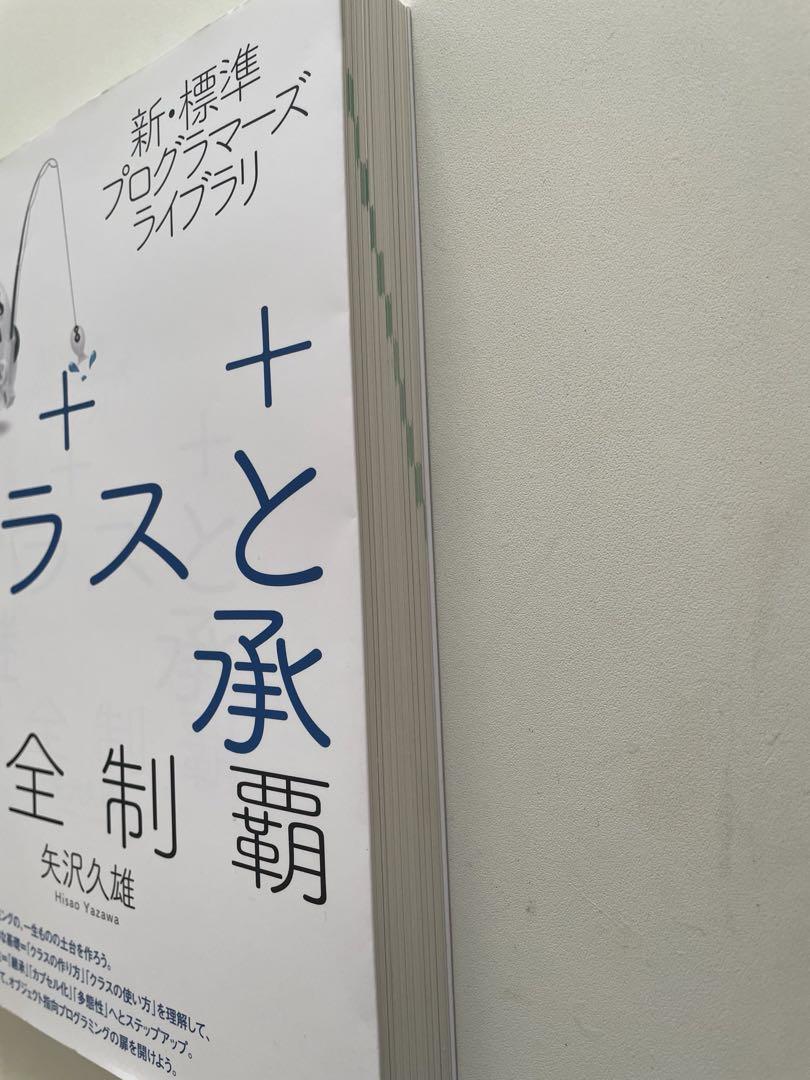 新・標準
プログラマーズ
ライブラリ
+ +
ラスと
承
全制覇
矢沢久雄
Hisao Yazawa
ミングの、一生ものの土台を作ろう。
な基礎=「クラスの作り方」「クラスの使い方」を理解して、
=「継承」「カプセル化」「多態性」へとステップアップ。
て、オブジェクト指向プログラミングの扉を開けよう。